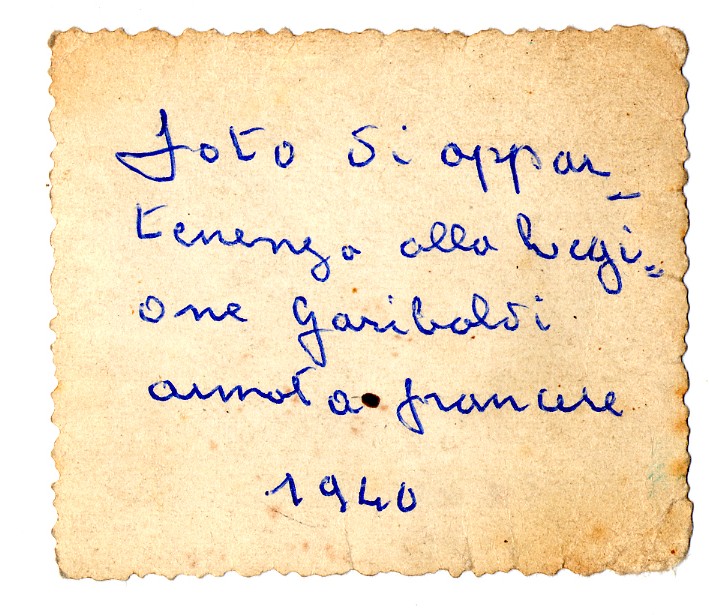 Foto di appar_
tenenza alla Legi=
one Garibaldi
armata francese
1940